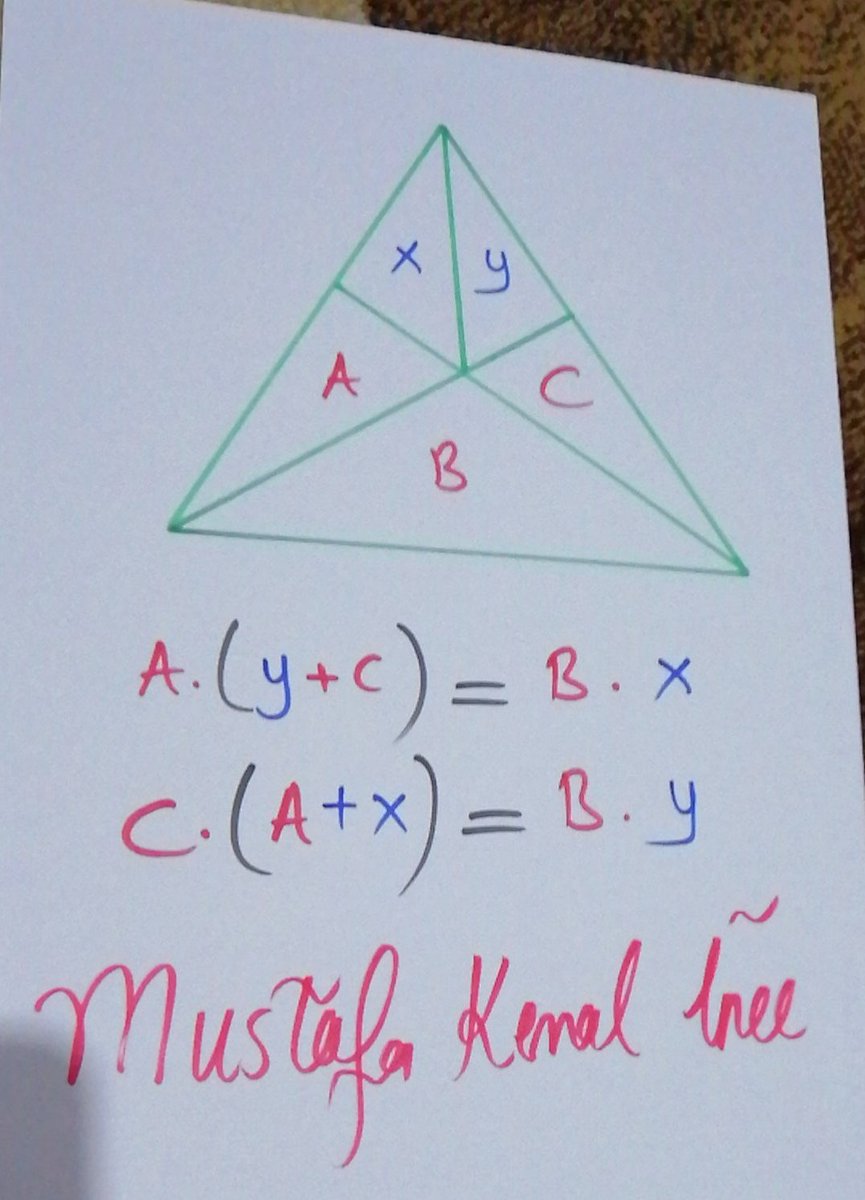 x y
A C
B
A.(y+c) = B. x
C.(A+x) = B. y
Mustafa Kemal